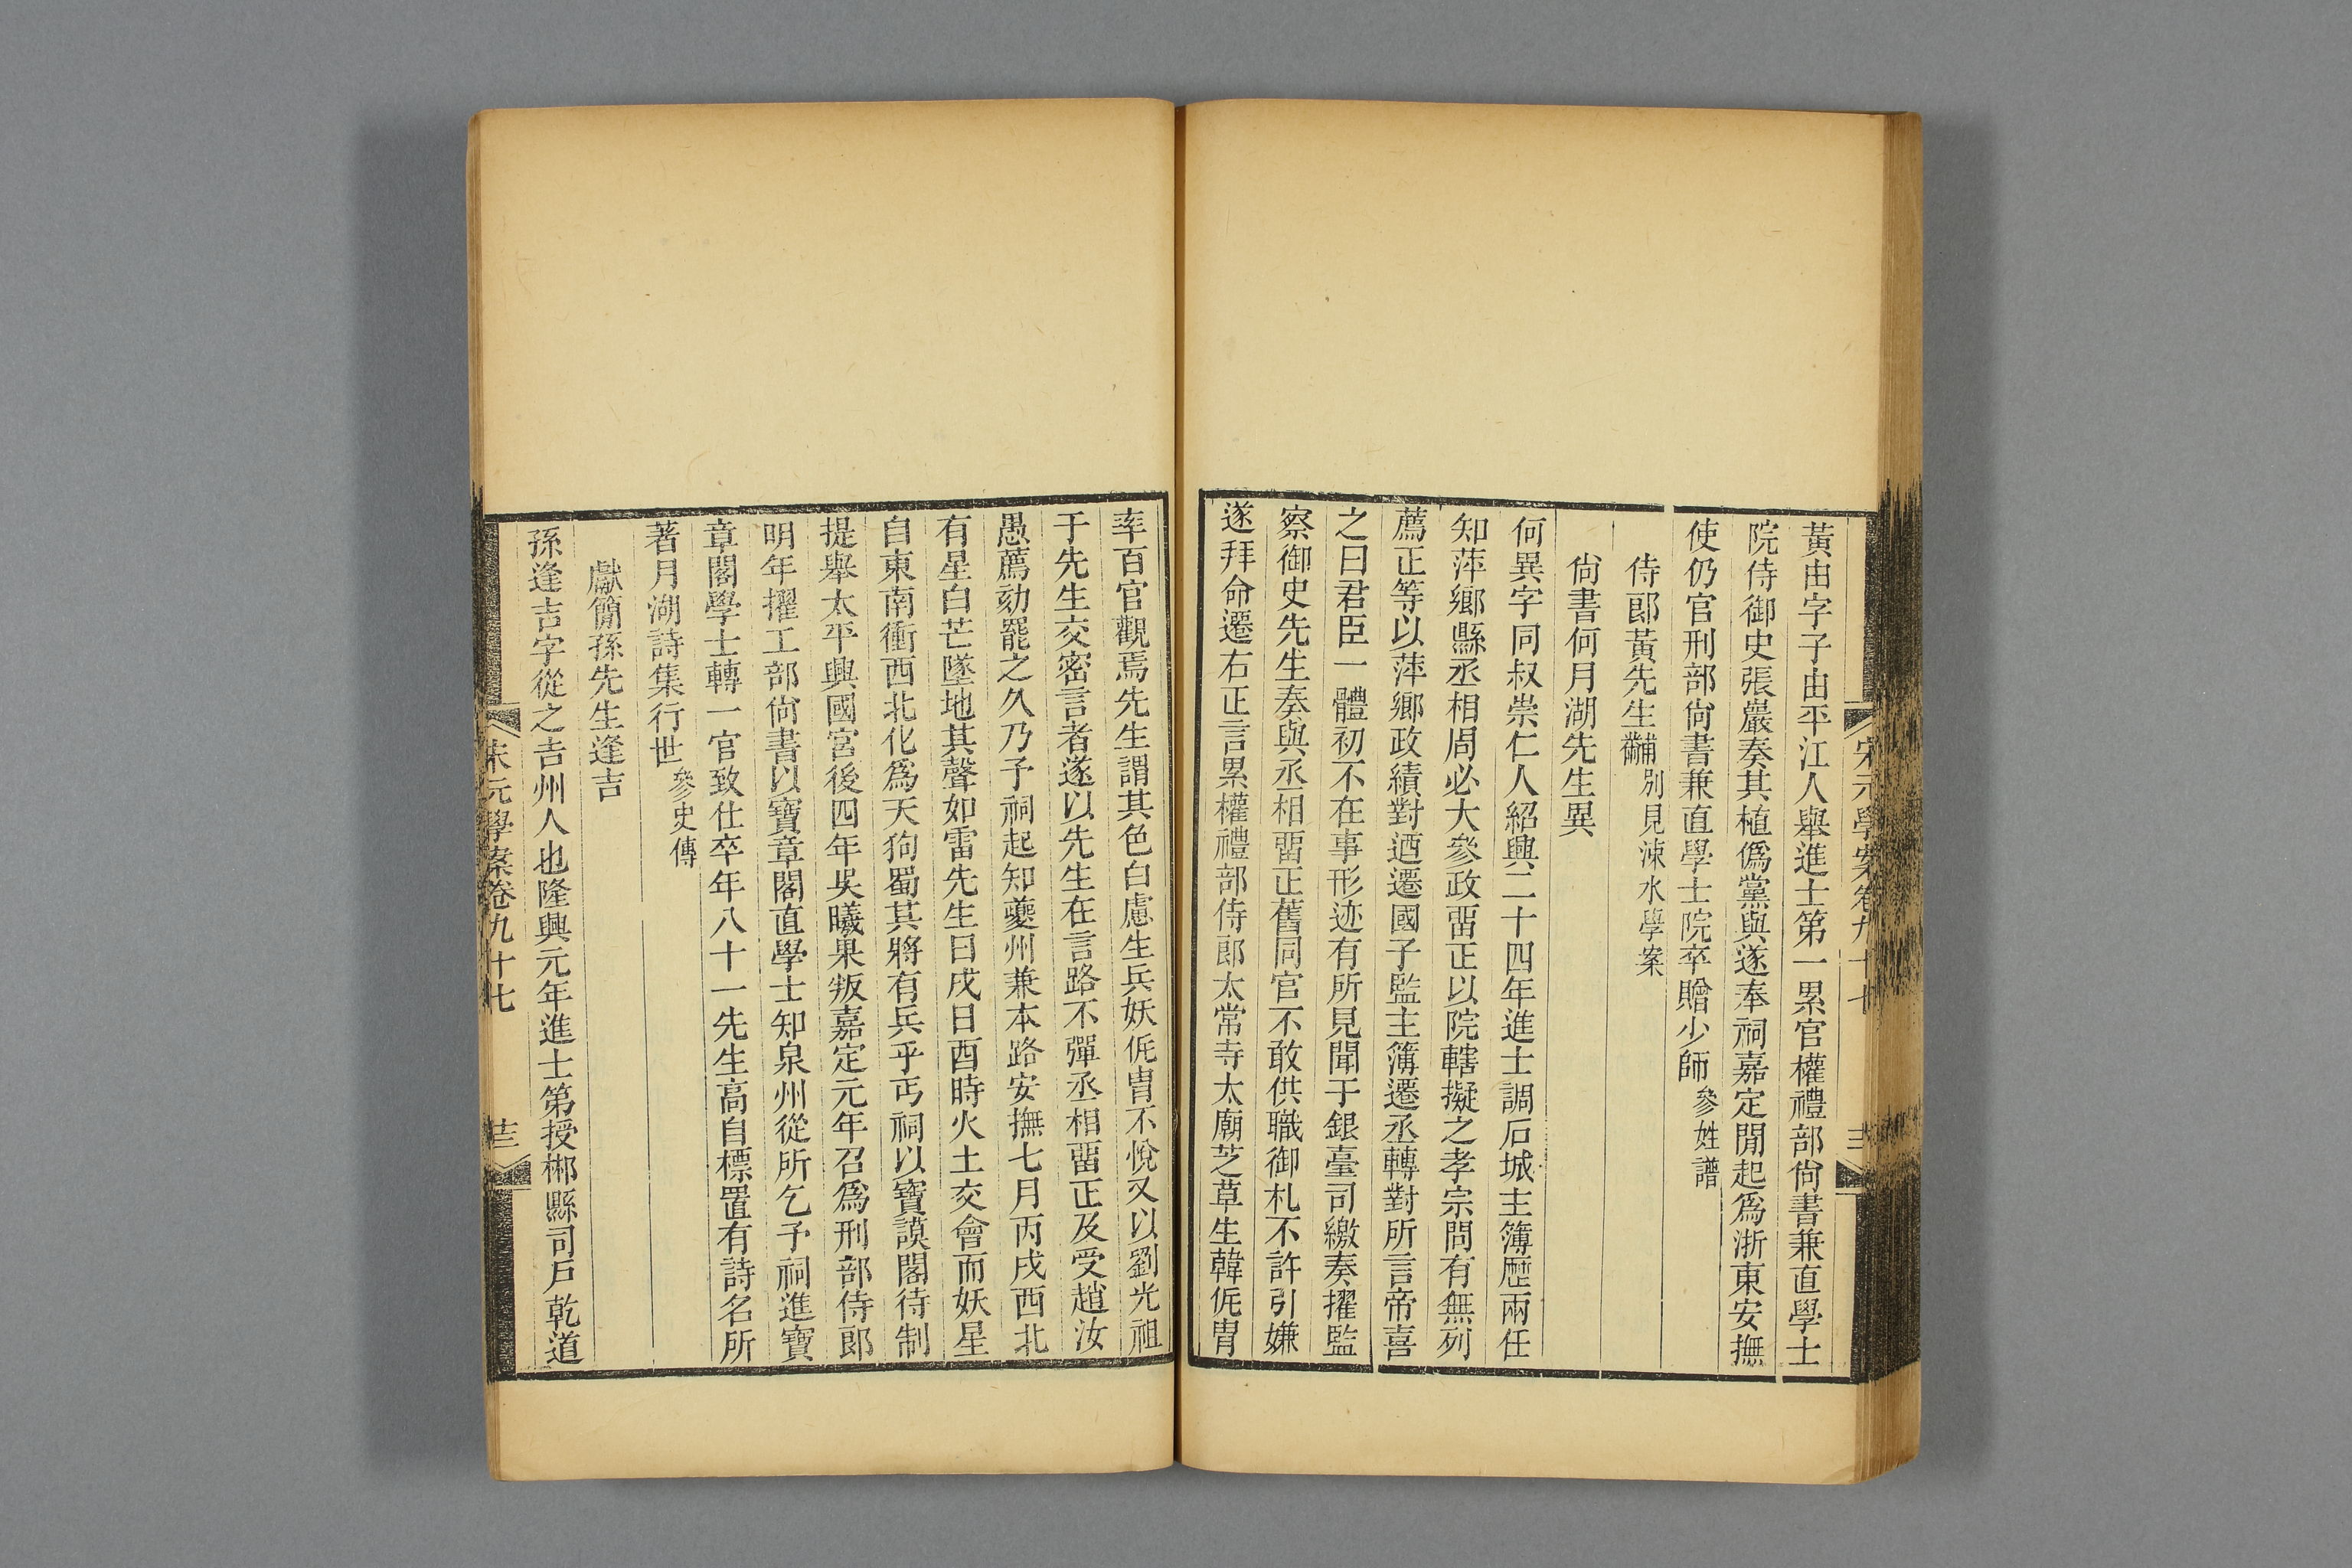 宋元學案卷九十七
黃由字子由平江人舉進士第一累官權禮部尙書兼直學士
院侍御史張巖奏其植僞黨與遂奉祠嘉定閒起爲浙東安撫
使仍官刑部尙書兼直學士院卒贈少師參姓譜
侍郎黃先生黼別見涑水學案
尙書何月湖先生異
何異字同叔崇仁人紹興二十四年進士調石城主簿歷兩任
知萍鄉縣丞相周必大參政畱正以院轄擬之孝宗問有無列
薦正等以萍鄉政績對迺遷國子監主簿遷丞轉對所言帝喜
之曰君臣一體初不在事形迹有所見聞于銀臺司繳奏擢監
察御史先生奏與丞相畱正舊同官不敢供職御札不許引嫌
遂拜命遷右正言累權禮部侍郎太常寺太廟芝草生韓侂冑
率百官觀焉先生謂其色白慮生兵妖侂冑不悅又以劉光祖
于先生交密言者遂以先生在言路不彈丞相畱正及受趙汝
愚薦劾罷之久乃予祠起知夔州兼本路安撫七月丙戌西北
有星白芒墜地其聲如雷先生曰戌日酉時火土交會而妖星
自東南衝西北化爲天狗蜀其將有兵乎丐祠以寶謨閣待制
提舉太平興國宮後四年吳曦果叛嘉定元年召爲刑部侍郎
明年擢工部尙書以寶章閣直學士知泉州從所乞予祠進寶
章閣學士轉一官致仕卒年八十一先生高自標置有詩名所
著月湖詩集行世參史傳
獻簡孫先生逢吉
孫逢吉字從之吉州人也隆興元年進士第授郴縣司戶乾道
宋元學案卷九十七